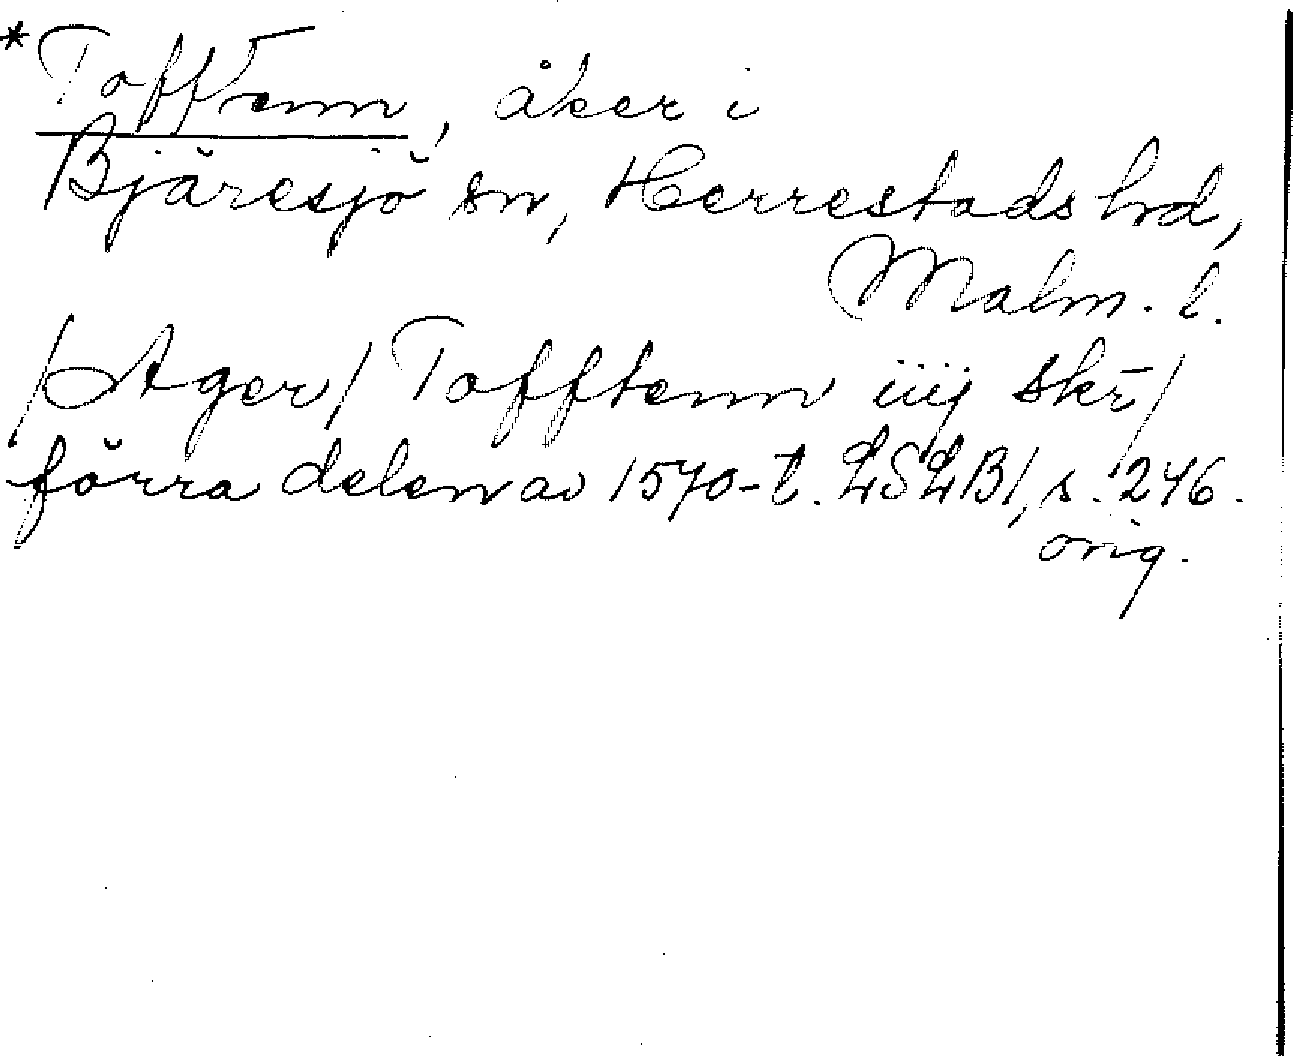 *Tofftenn, åker i
Bjäresjö sn, Herrestads hd,
Malm. l.
/Ager/ Tofftenn iiij skr̄/
förra delen av 1570-t. LSLB1, s. 246.
orig.